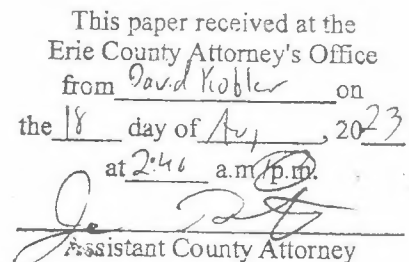 This paper received at the
Erie County Attorney's Office
from David Kobler on
the 18 day of Aug, 2023
at 2:46 a.m./p.m.
Assistant County Attorney